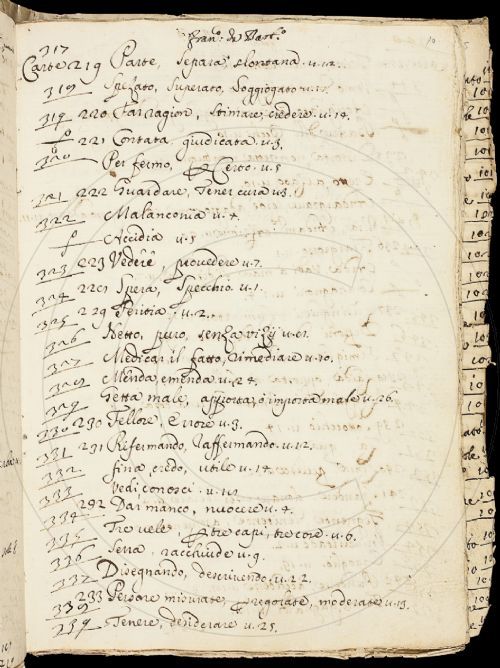 Fran.º da Bart.º
10
317
Carte 219 Parte, separa, slontana. u. 12.
318 Spezato, Superato, Soggiogato u. 12.
319 220 Far ragion, Stimare, credere. u. 14.
221 Contata, giudicata u. 3.
320 Per fermo, Certo. u. 5
321 222 Guardare, Tener cura u 3.
322 Malanconia u. 4.
Accidia u. 5
323 223 Vedere, provedere u. 7.
324 Spera, Specchio. u. 1.
325 229 u. 2.
326 Netto, puro, senza vizij u.
327 Medicar il fatto, rimediare u. 10.
328 Menda, emenda u. 24.
329 Getta male, apporta, ò importa male u. 26.
330 230 Fellore, Errore u. 3.
331 231 Rifermando, Raffermando u. 12.
332 fina, credo, utile u. 14.
333 vedi conosci u.
334 232 Dar manco, nuocere u. 4.
335 Tre vele, tre capi, tre core. u. 6.
336 Serra, racchiude u. 9.
337 Disegnando, descrivendo u. 22.
233 Persone misurate, regolate, moderate u. 13.
339 Tenere, desiderare u. 25.